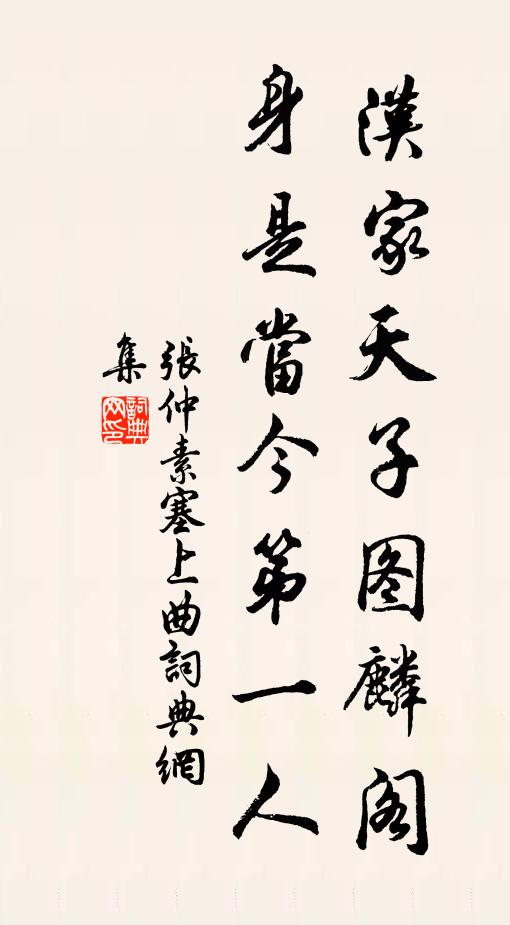 漢家天子图麟阁
身是當今第一人
張仲素塞上曲詞典網
集
詞典
网印